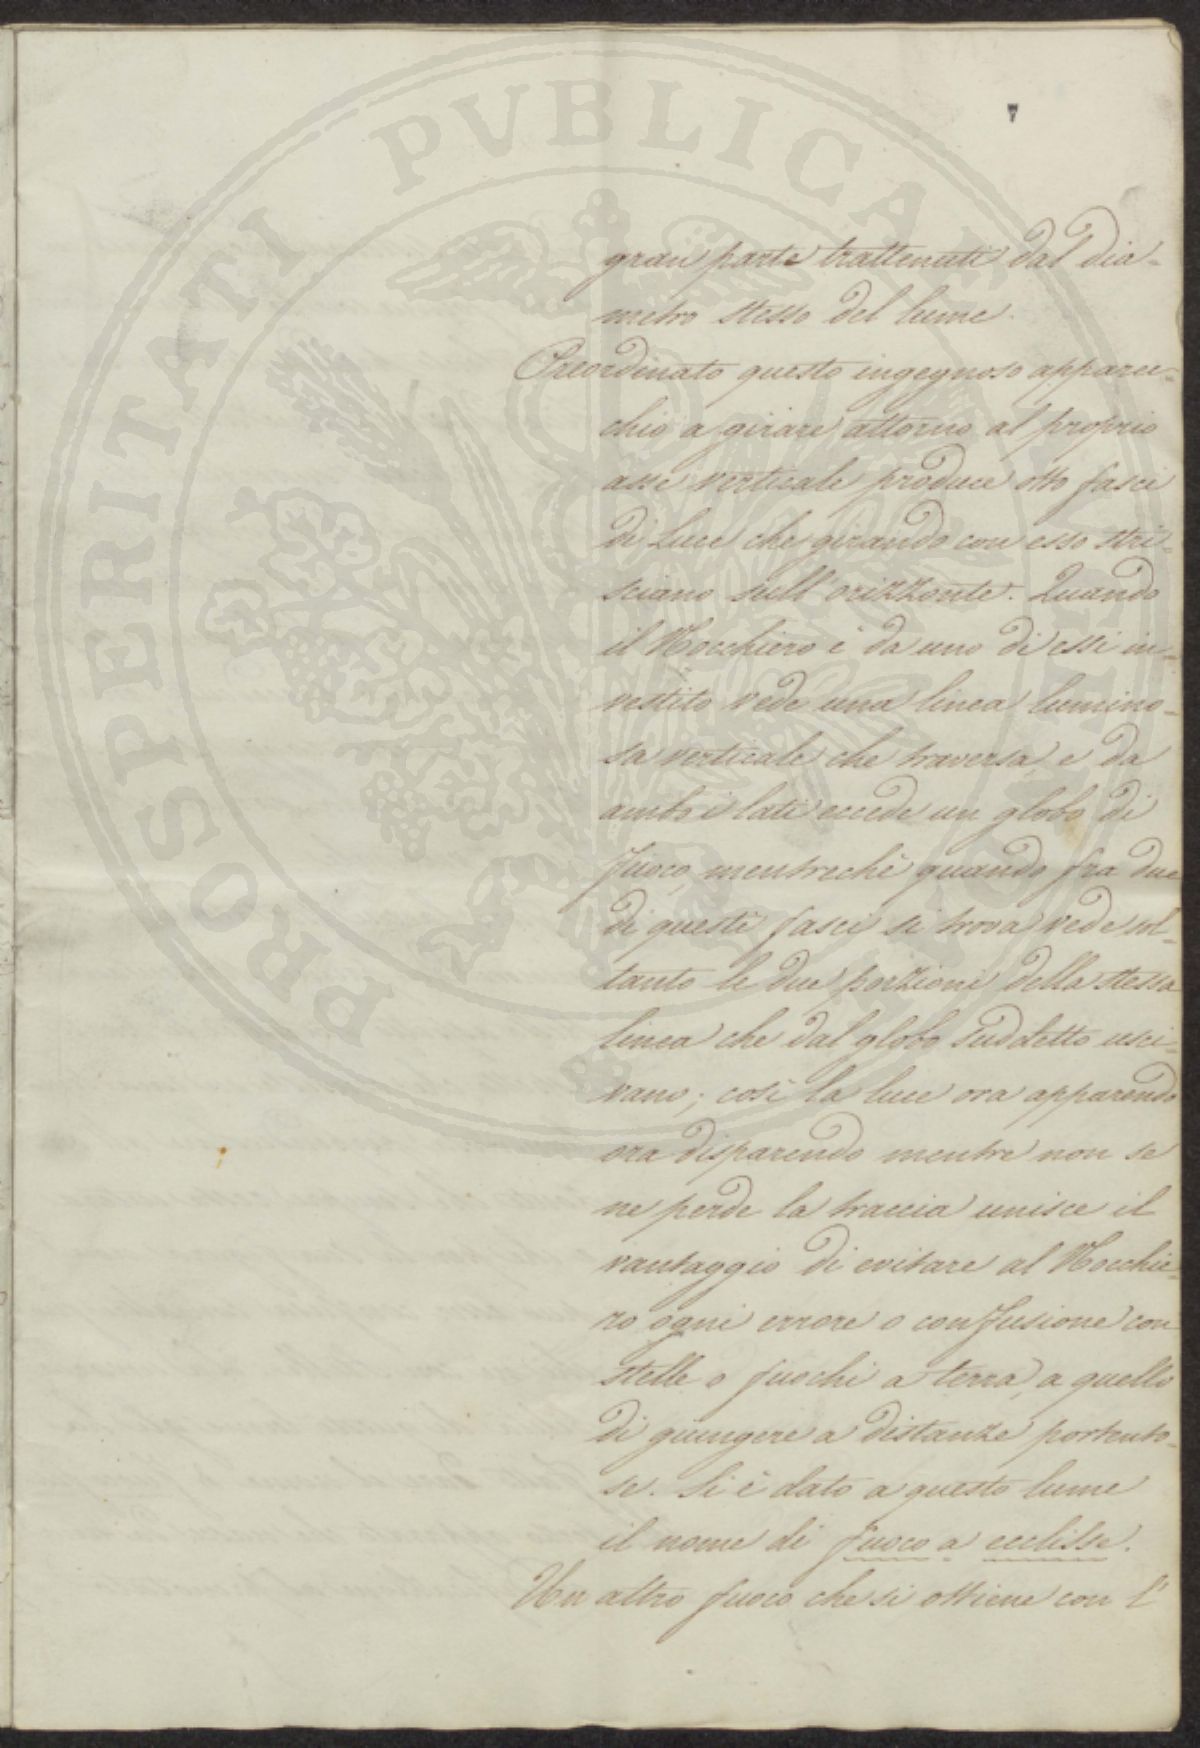 PROSPERITATI PVBLICAE
7
gran parte trattenuti dal dia-
metro stesso del lume.
Preordinato questo ingegnoso apparec-
chio a girare attorno al proprio
asse verticale produce otto fasci
di Luce che girando con esso stri-
sciano sull'orizzonte. Quando
il Nocchiero è da uno di essi in-
vestito vede una linea lumino-
sa verticale che traversa, e da
ambo i lati eccede un globo di
fuoco, mentrechè quando fra due
di questi fasci si trova vede sol-
tanto le due porzioni della stessa
linea che dal globo suddetto usci-
vano; così la luce ora apparendo
ora disparendo mentre non se
ne perde la traccia unisce il
vantaggio di evitare al Nocchie-
ro ogni errore o confusione con
stelle o fuochi a terra, a quello
di giungere a distanze portento-
se. Si è dato a questo lume
il nome di fuoco a ecclisse.
Un altro fuoco che si ottiene con l'